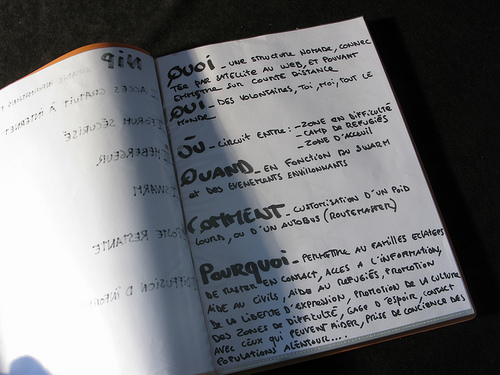 QUOI - UNE STRUCTURE NOMADE, CONNEC
TER PAR SATELLITE AU WEB, ET POUVANT
EMMETTRE SUR COURTE DISTANCE
QUI - DES VOLONTAIRES, TOI, MOI, TOUT LE
MONDE -
OÙ - CIRCUIT ENTRE : - ZONE EN DIFFICULTÉ
- CAMP DE REFUGIÉS
- ZONE D'ACCUEIL
QUAND - EN FONCTION DU SWARM
et DES EVENEMENTS ENVIRONNANTS
COMMENT - CUSTOMISATION D'UN POID
LOURD, OU D'UN AUTOBUS (ROUTEMASTER)
POURQUOI - PERMETTRE AU FAMILLES ECLATEES
DE RESTER EN CONTACT, ACCES A L'INFORMATION,
AIDE AU CIVILS, AIDE AU REFUGIÉS, PROMOTION,
DE LA LIBERTÉ D'EXPRESSION, PROMOTION DE LA CULTURE
DES ZONES DE DIFFICULTÉ, GAGE D'ESPOIR, CONTACT
AVEC CEUX QUI PEUVENT AIDER, PRISE DE CONCIENCE DES
POPULATIONS ALENTOUR....